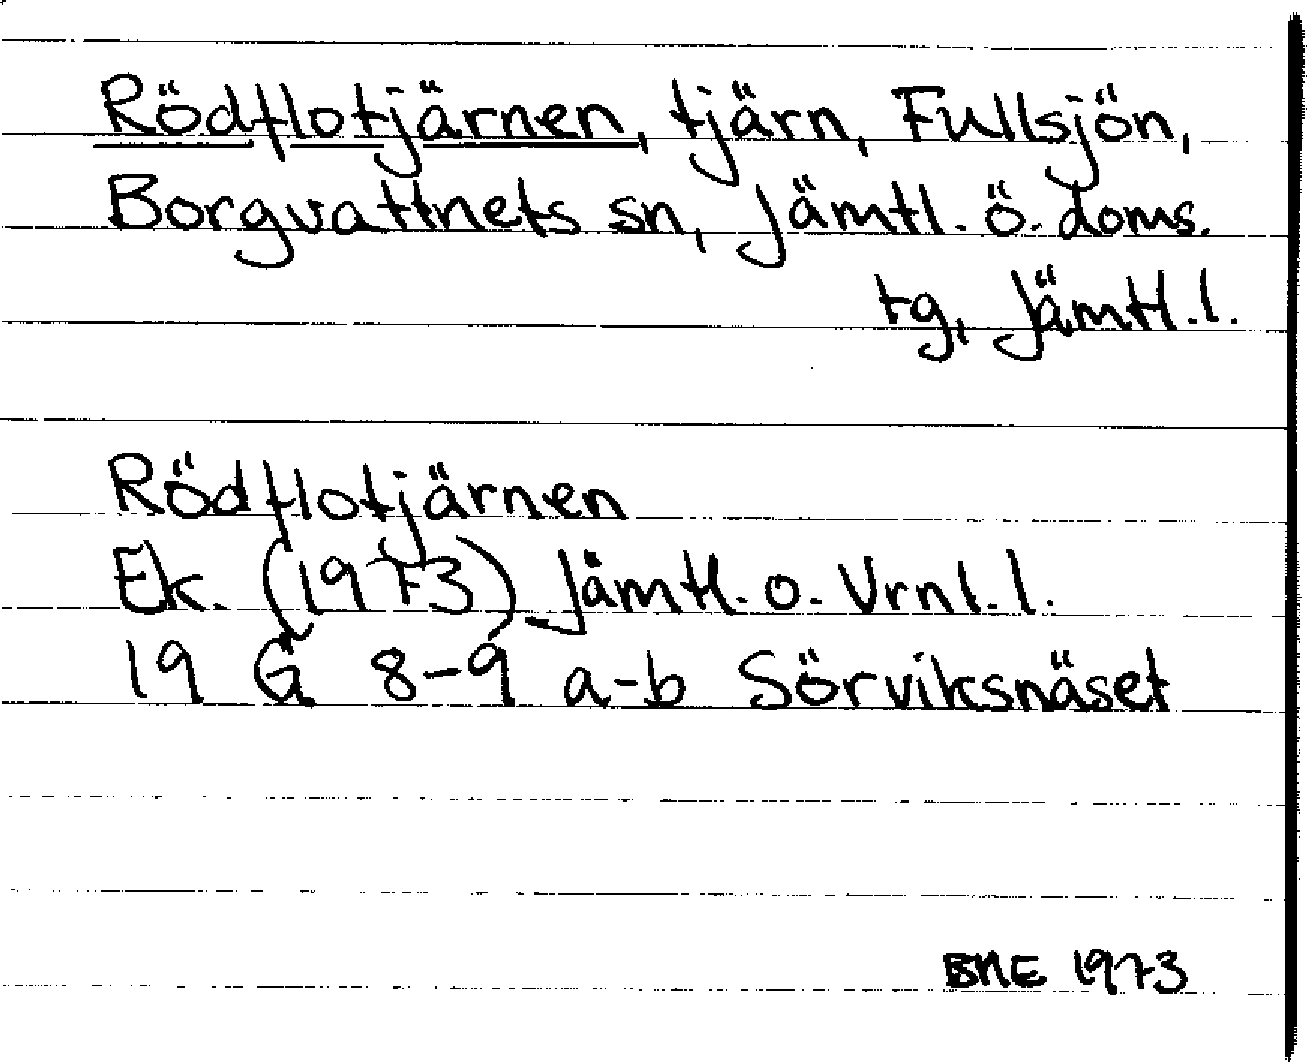 Rödflotjärnen, tjärn, Fullsjön,
Borgvattnets sn, Jämtl. ö. doms.
tg, Jämtl. l.
Rödflotjärnen
Ek. (1973) Jämtl. o. Vrnl. l.
19 G 8-9 a-b Sörviksnäset
BNE 1973